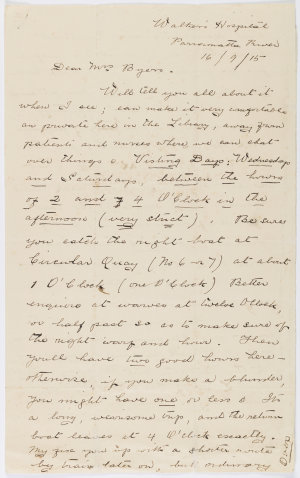 Walker Hospital
Parramatta River
16/9/15
Dear Mrs Byers.
Will tell you all about it
when I see; can make it very comfortable
an private here in the Library, away from
patients and nurses where we can chat
over things. Visiting Days; Wednesdays
and Saturdays, between the hours
of 2 and 4 O'Clock in the
afternoon (very strict). Be sure
you catch the right boat at
Circular Quay (No 6 or 7) at about
1 O'Clock (one O'Clock) Better
enquire at warves at twelve O'Clock,
or half past so as to make sure of
the right warf and hour. Then
you'll have two good hours here—
otherwise, if you make a blunder,
you might have one or less. It's
a long, wearisome trip, and the return
boat leaves at 4 O'Clock exactly.
May fix you up with a shorter route
by train later on, but ordinary
Over